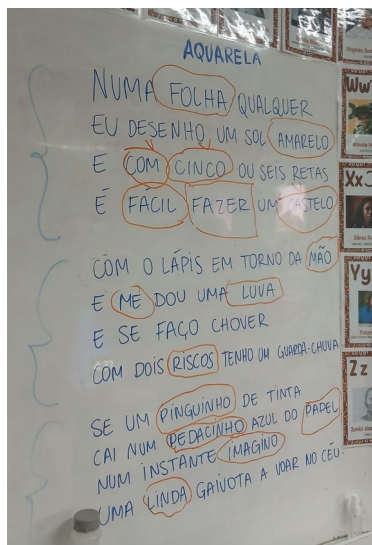 AQUARELA
NUMA FOLHA QUALQUER
EU DESENHO UM SOL AMARELO
E COM CINCO OU SEIS RETAS
É FÁCIL FAZER UM CASTELO
COM O LÁPIS EM TORNO DA MÃO
E ME DOU UMA LUVA
E SE FAÇO CHOVER
COM DOIS RISCOS TENHO UM GUARDA-CHUVA
SE UM PINGUINHO DE TINTA
CAI NUM PEDACINHO AZUL DO PAPEL
NUM INSTANTE IMAGINO
UMA LINDA GAIVOTA A VOAR NO CÉU.
Ww
Xx
Yy
Zz